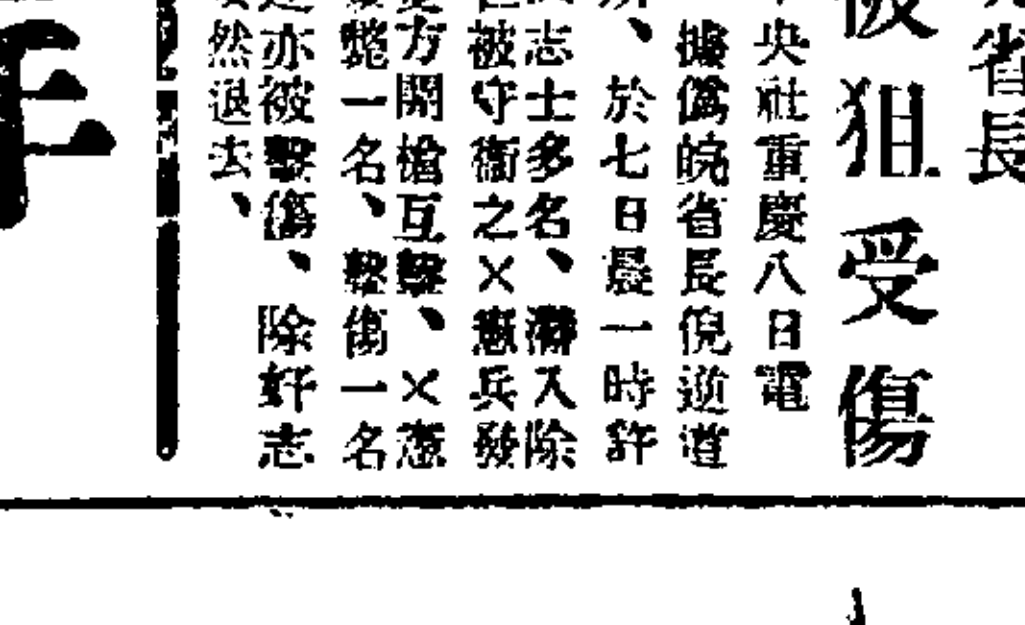 省長
被狙受傷
央社重慶八日電
據偽皖省長倪逆道
、於七日晨一時許
志士多名、潛入除
被守衛之×憲兵發
方開槍互擊、×憲
斃一名、擊傷一名
亦被擊傷、除奸志
然退去、